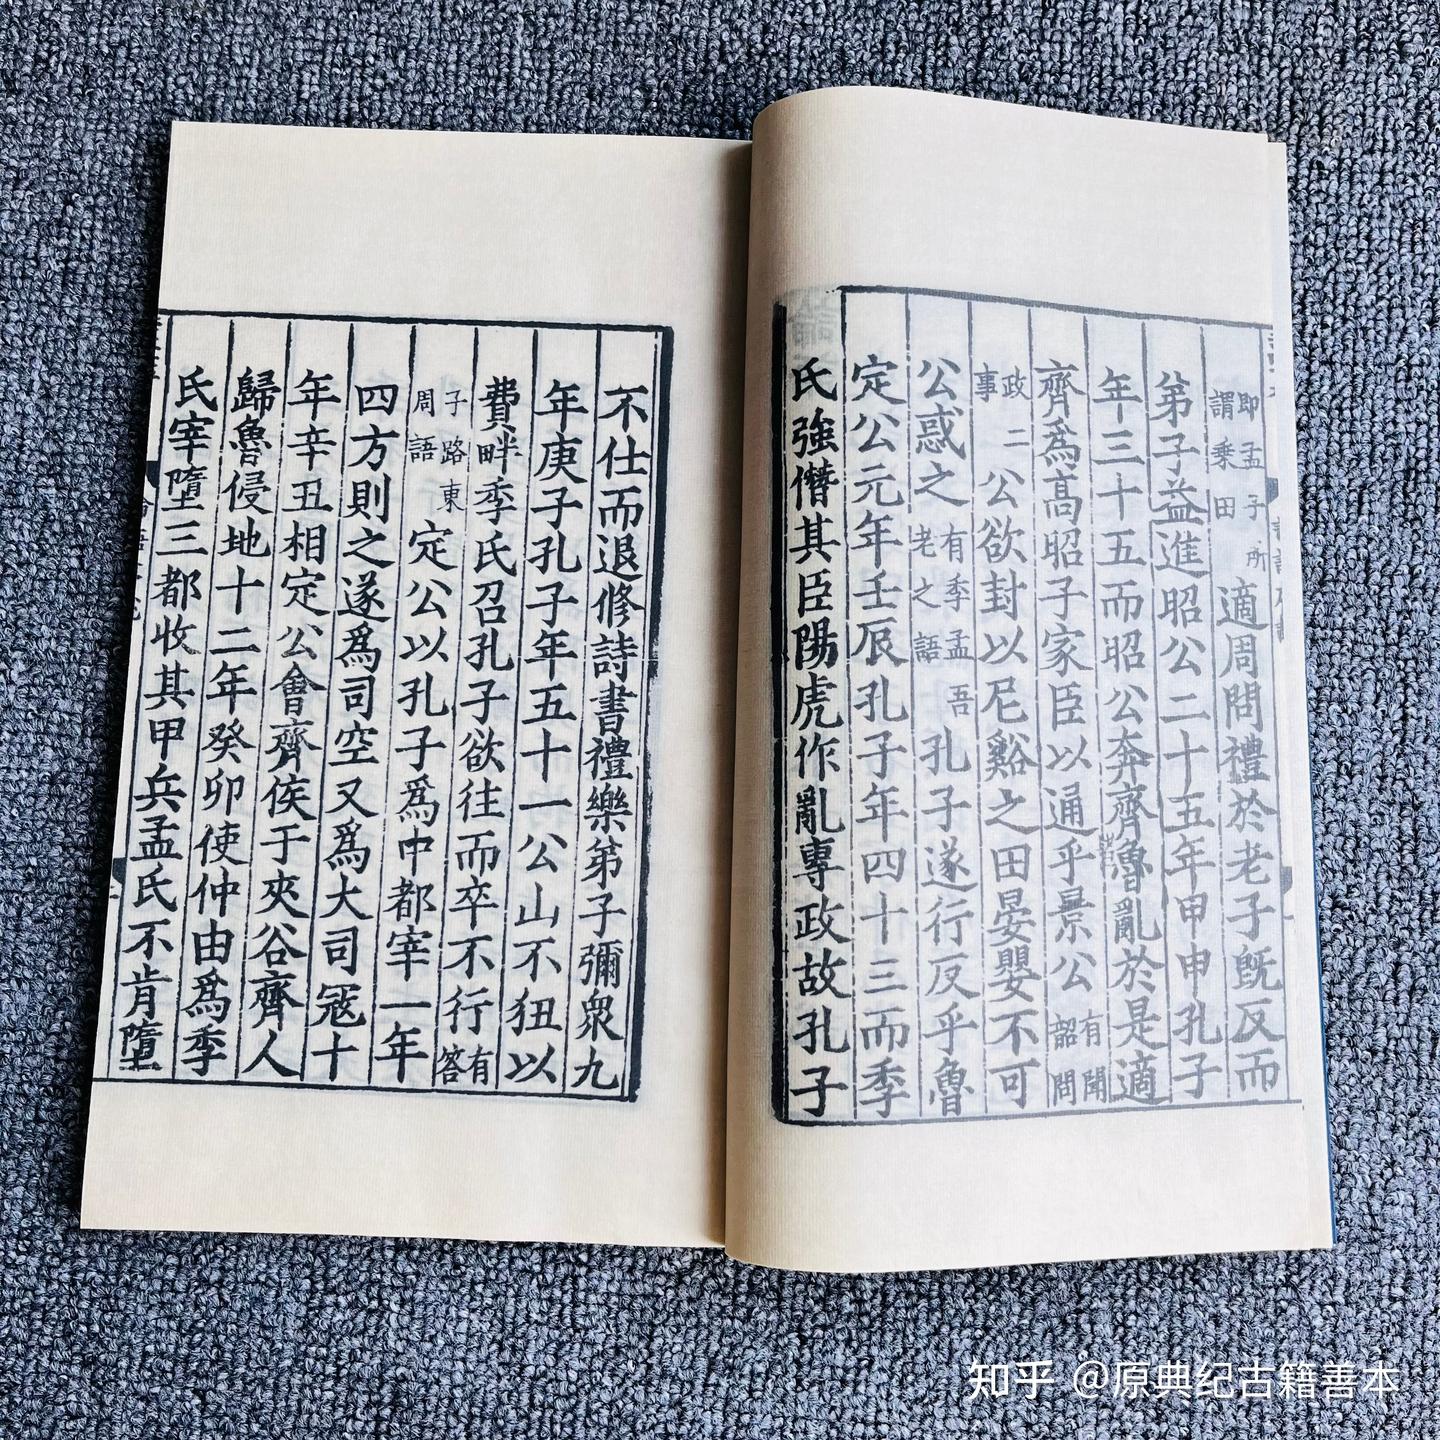 即孟子所謂乘田適周問禮於老子旣反而
弟子益進昭公二十五年甲申孔子
年三十五而昭公奔齊魯亂於是適
齊爲高昭子家臣以通乎景公有聞韶問
政二事公欲封以尼谿之田晏嬰不可
公惑之有季孟吾老之語孔子遂行反乎魯
定公元年壬辰孔子年四十三而季
氏強僭其臣陽虎作亂專政故孔子
不仕而退修詩書禮樂弟子彌衆九
年庚子孔子年五十一公山不狃以
費畔季氏召孔子欲往而卒不行有答
子路東周語定公以孔子爲中都宰一年
四方則之遂爲司空又爲大司寇十
年辛丑相定公會齊侯于夾谷齊人
歸魯侵地十二年癸卯使仲由爲季
氏宰墮三都收其甲兵孟氏不肯墮
知乎 @原典纪古籍善本